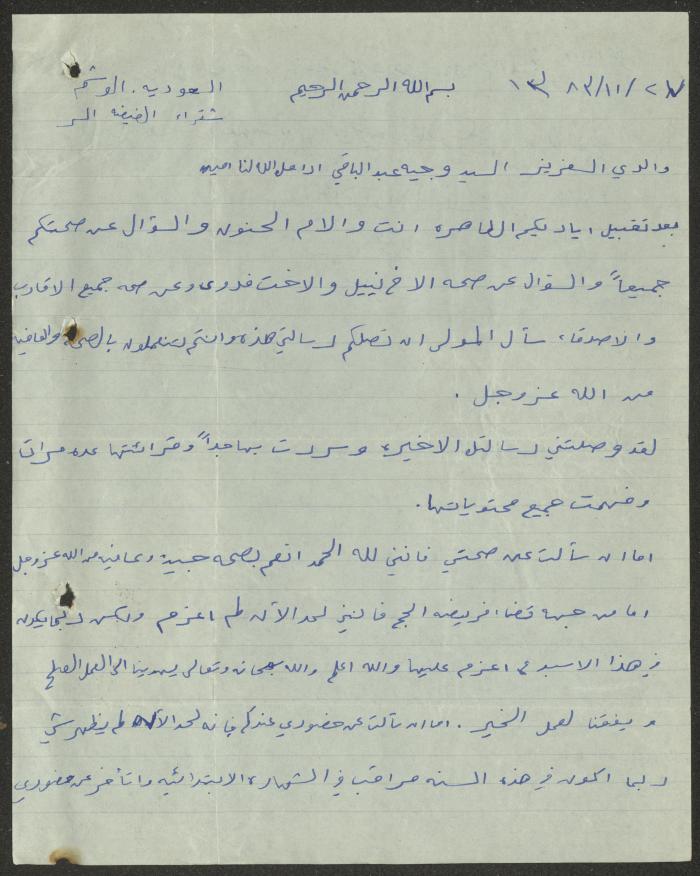 ٢٧/١١/٨٣ هـ بسم الله الرحمن الرحيم السعوديه. الوشم
شقراء
والدي العزيز السيد وجيه عبد الباقي ادامك الله لنا امين
بعد تقبيل اياديكم الطاهره انت والام الحنون والسؤال عن صحتكم
جميعاً والسؤال عن صحه الاخ نبيل والاخت فدوى وعن صحه جميع الاقارب
والاصدقاء سأل المولى ان تصلكم رسالتي هذه وانتم تنعمون بالصحه والعافيه
من الله عز وجل .
لقد وصلتني رسالتك الاخيره وسررت بها جداً وقرائتها عده مرات
وفهمت جميع محتوياتها.
اما ان سألت عن صحتي فانني لله الحمد انعم بصحه جيده وعافيه من الله عز وجل
اما من جهه قضاء فريضه الحج فانني لحد الآن لم اعزم ولكن ربما يكون
في هذا الاسبوع اعزم عليها والله اعلم والله سبحانه وتعالى يهدينا الى العمل الصالح
ويفقنا لعمل الخير . اما ان سألت عن حضوري عندكم فإنه لحد الآن لم يظهر شي
ربما اكون في هذه السنه مراقب في الشهاده الابتدائيه واتأخر عن حضوري